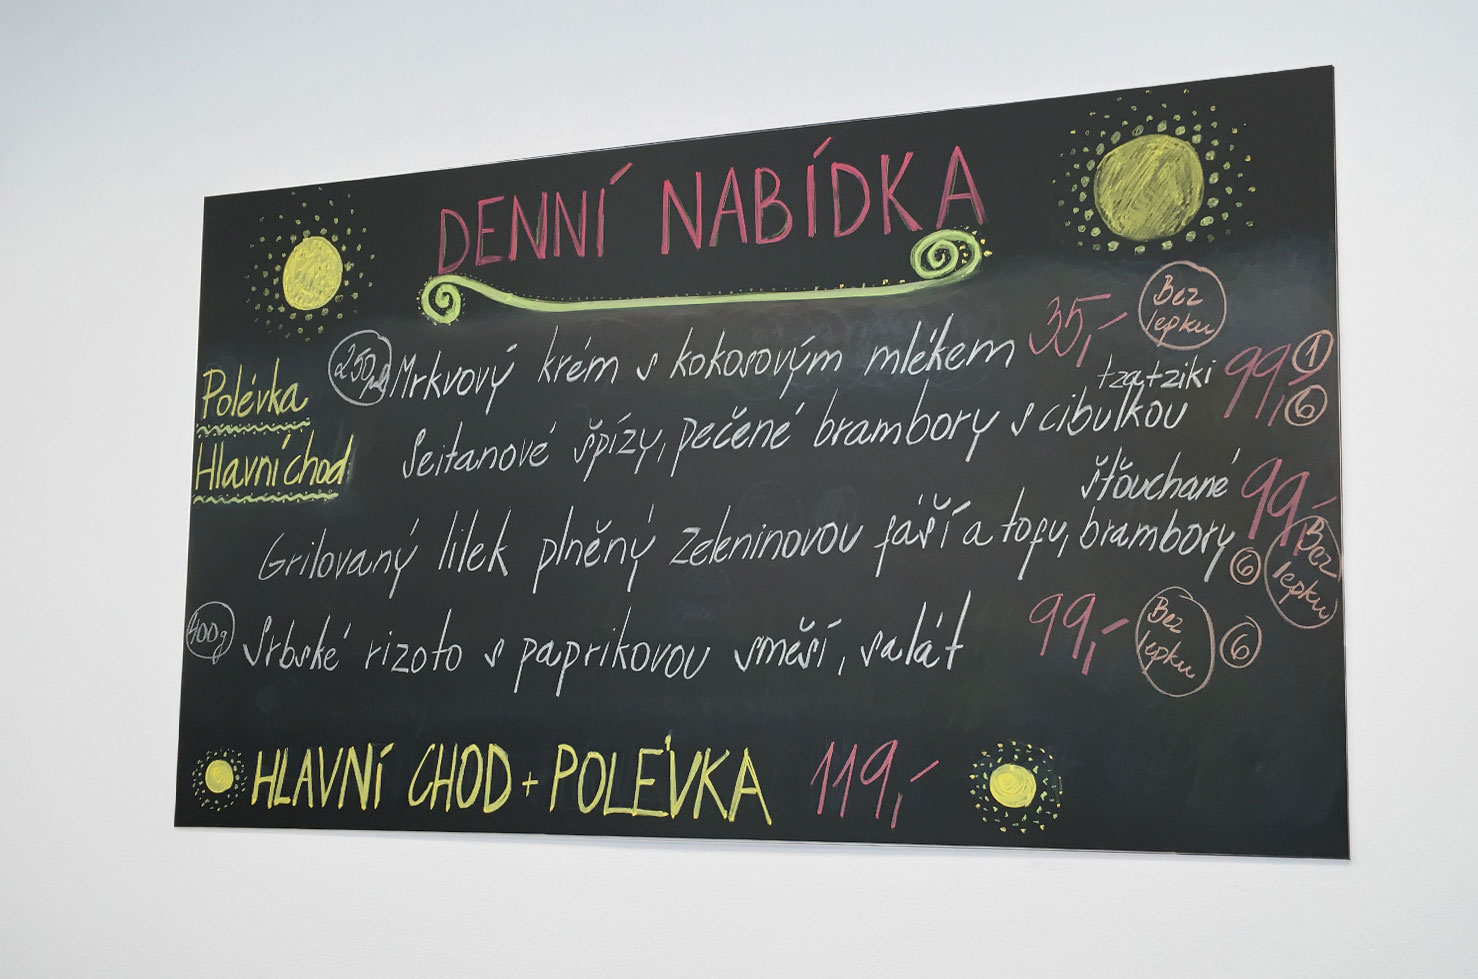 DENNÍ NABÍDKA
Polévka 250ml Mrkvový krém s kokosovým mlékem 35,- Bez lepku
Hlavní chod Seitanové špízy, pečené brambory s cibulkou tzatziki 99,- 1 6
Grilovaný lilek plněný zeleninovou fáší a tofu, šťouchané brambory 99,- 6 Bez lepku
400g Srbské rizoto s paprikovou směší, salát 99,- Bez lepku 6
HLAVNÍ CHOD + POLÉVKA 119,-